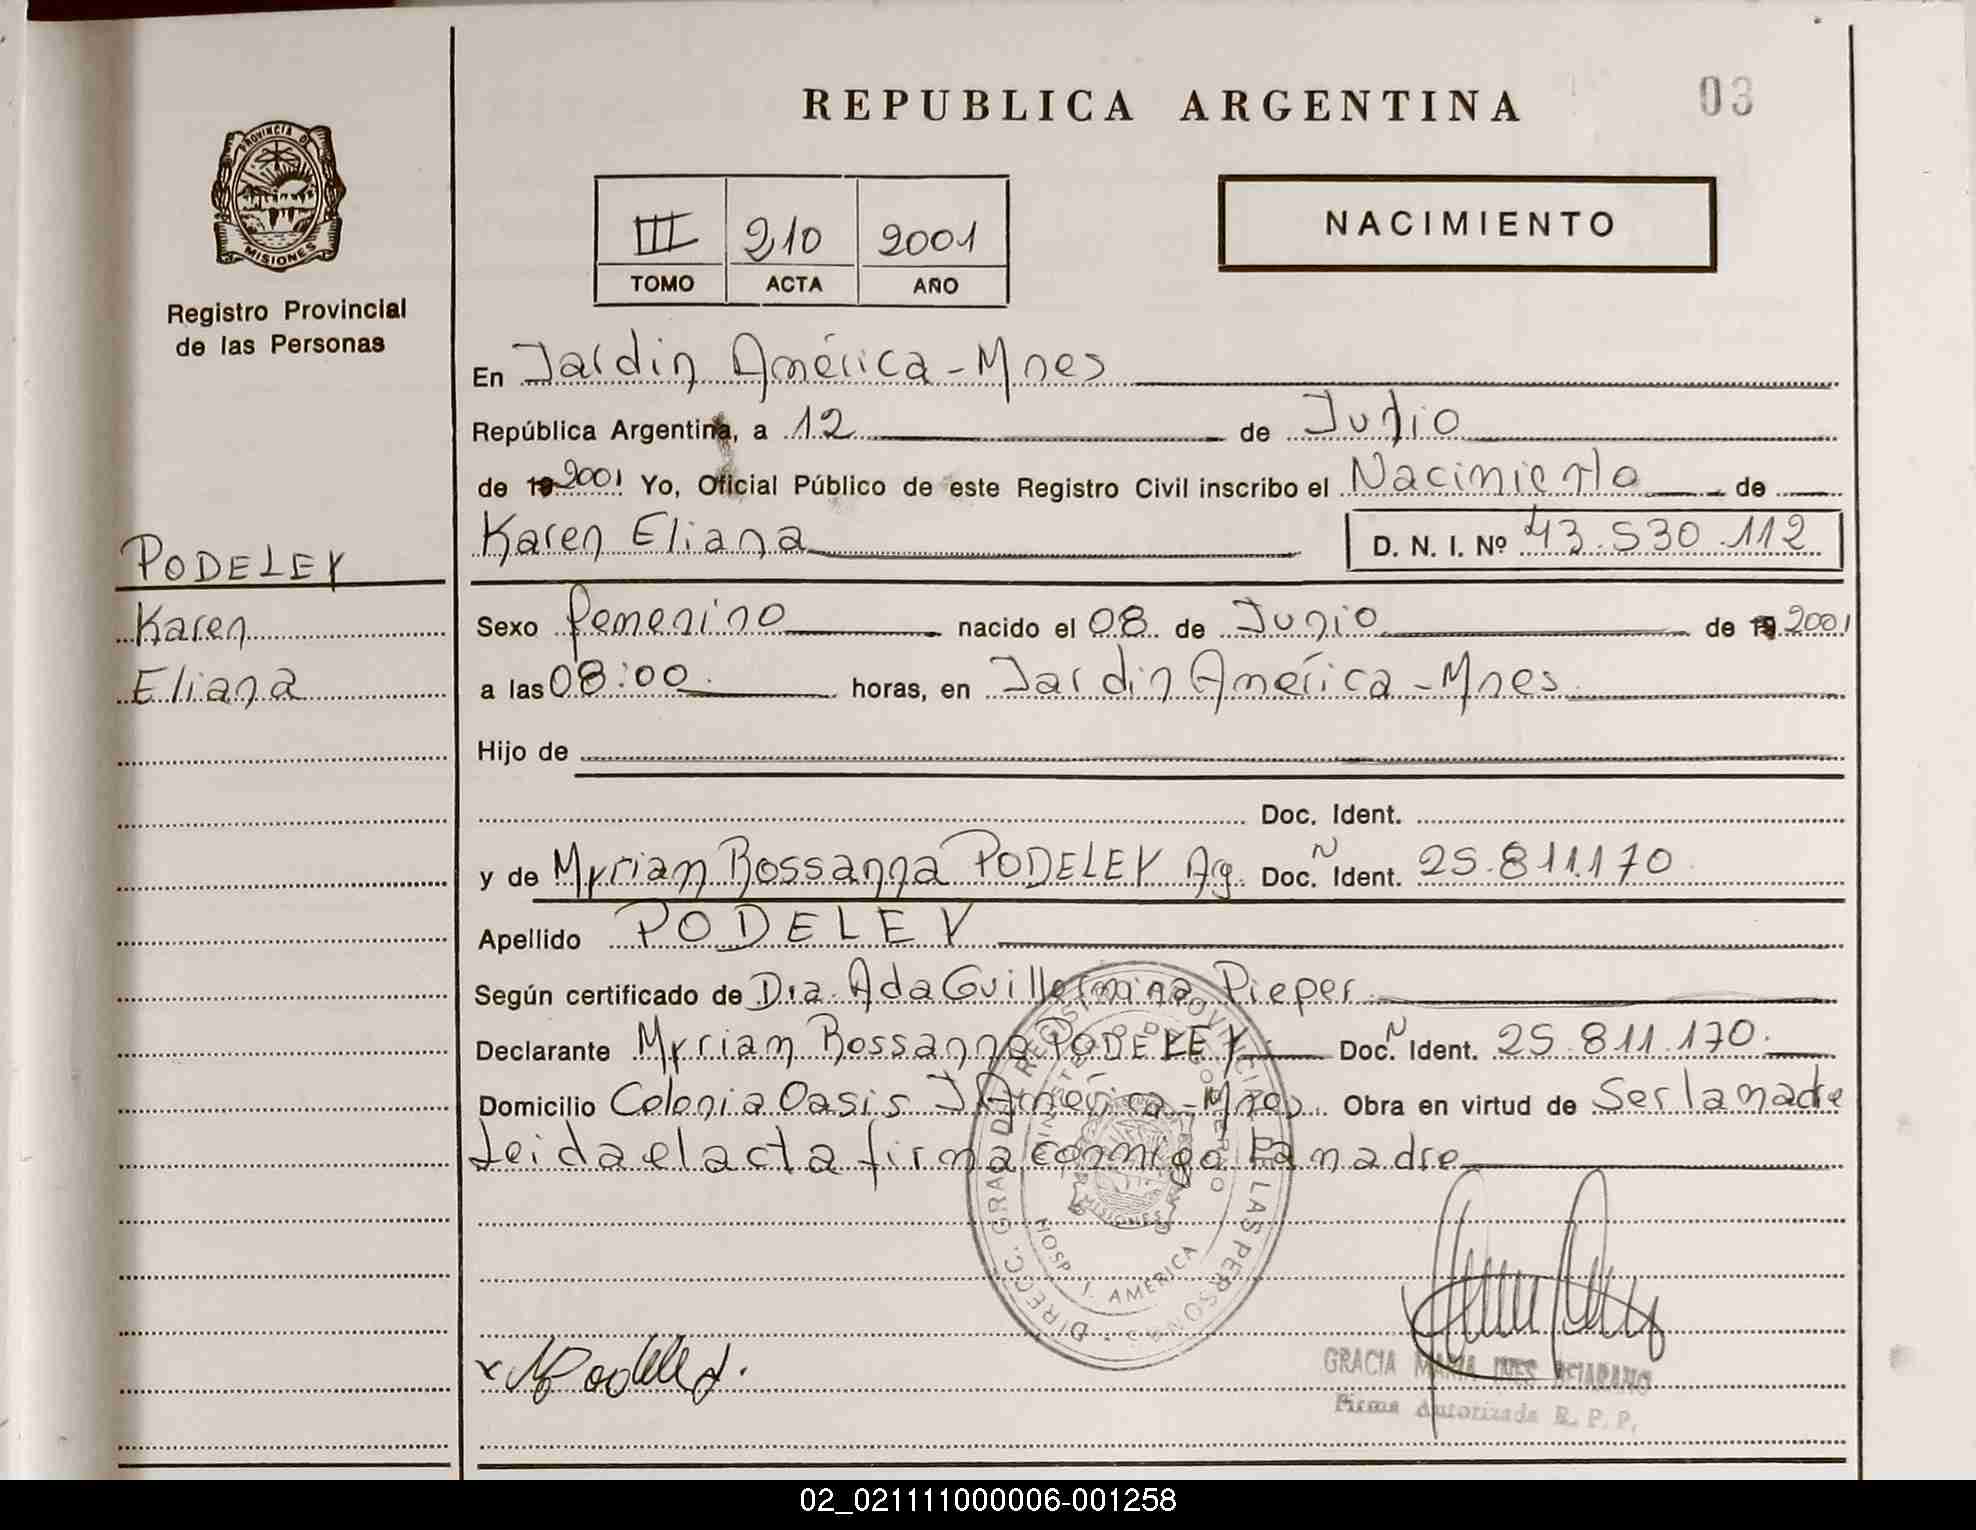 REPUBLICA ARGENTINA
03
PROVINCIA DE MISIONES
Registro Provincial
de las Personas
III 210 2001
TOMO ACTA AÑO
NACIMIENTO
En Jardin América - Mnes
República Argentina, a 12 de Junio
de 19 2001 Yo, Oficial Público de este Registro Civil inscribo el Nacimiento de
Karen Eliana D. N. I. Nº 43.530.112
PODELEY
Karen
Eliana
Sexo femenino nacido el 08 de Junio de 19 2001
a las 08:00 horas, en Jardin América - Mnes
Hijo de
Doc. Ident.
y de Myrian Rossanna PODELEY Ag. Doc. N Ident. 25.811.170
Apellido PODELEY
Según certificado de Dra. Ada Guillermina Pieper
Declarante Myrian Rossanna PODELEY Doc. N Ident. 25.811.170.
Domicilio Colonia Oasis J América - Mnes Obra en virtud de Ser la madre
Leida el acta firma conmigo La madre
DIRECC. GRAL DE REGISTRO PROVINCIAL DE LAS PERSONAS
MINISTERIO DE GOBIERNO
MISIONES
HOSP. J. AMERICA
GRACIA MARIA INES
Firma Autorizada R. P. P.
02_021111000006-001258